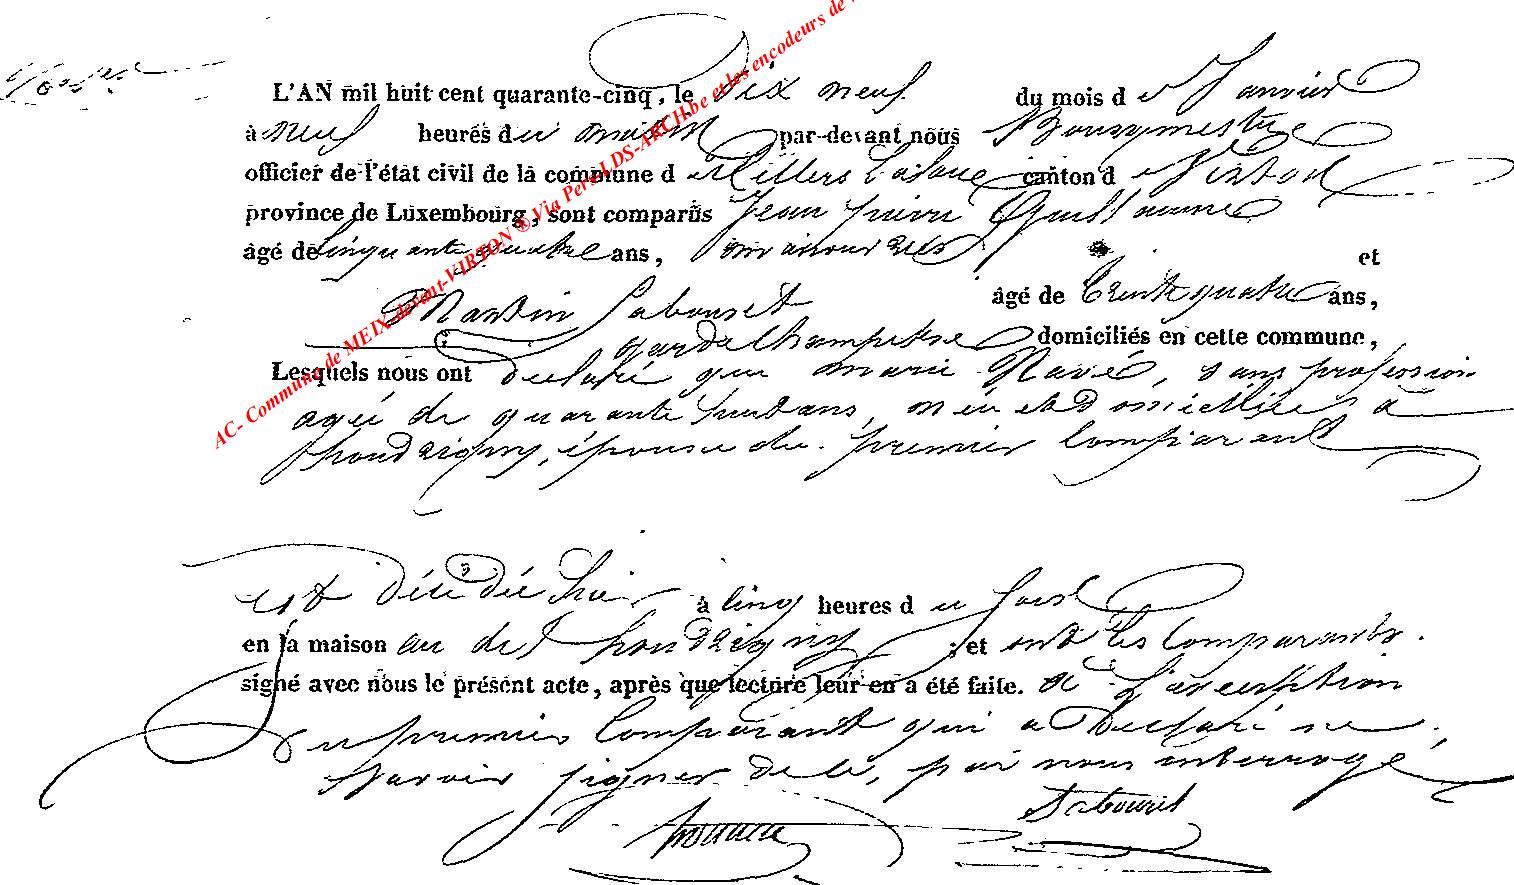 L'AN mil huit cent quarante-cinq, le Dix neuf du mois de Janvier
à neuf heures du matin par-devant nous Bourgmestre
officier de l'état civil de la commune de Villers Laloue canton de Virton
province de Luxembourg, sont comparus Jean Guillaume
âgé de Cinquante quatre ans, manouvrier et
Martin Sabouret âgé de Trente quatre ans,
garde Champetre domiciliés en cette commune,
Lesquels nous ont declaré que marie Navé, sans profession
agée de quarante huit ans, née et domiciliée à
houdrigny, épouse du premier Comparant
est décédée hier à cinq heures du soir
en la maison du dit houdrigny ; et ont les Comparants
signé avec nous le présent acte, après que lecture leur en a été faite. a L'exception
du premier Comparant qui a declaré ne
savoir signer de ce, par nous interrogé
Sabouret
AC- Commune de MEIX devant-VIRTON ® Via Pers LDS-ARCH.be et les encodeurs de